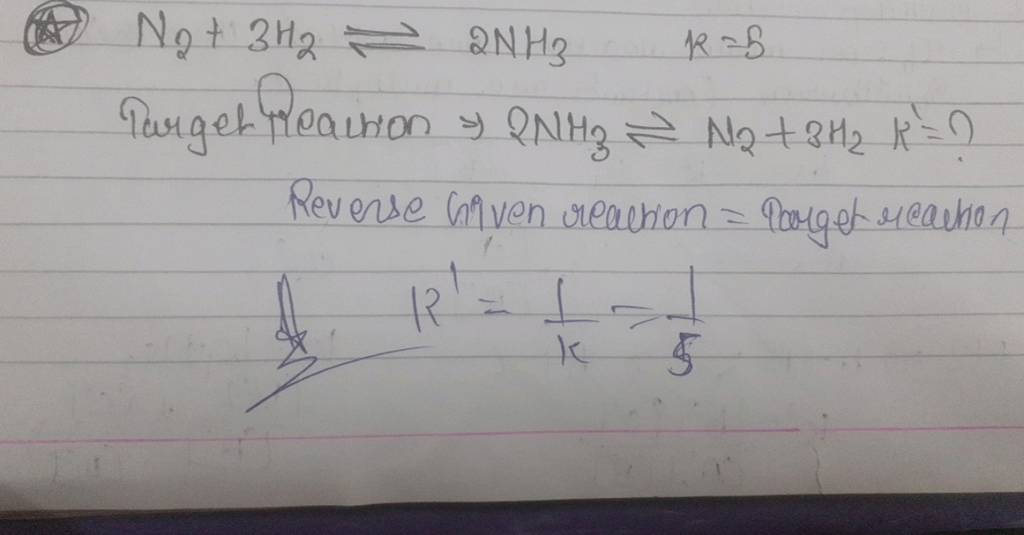 N2 + 3H2 ⇌ 2NH3 K = 5
Target Reaction ⇒ 2NH3 ⇌ N2 + 3H2 K' = ?
Reverse Given reaction = Target reaction
K' = 1/K = 1/5